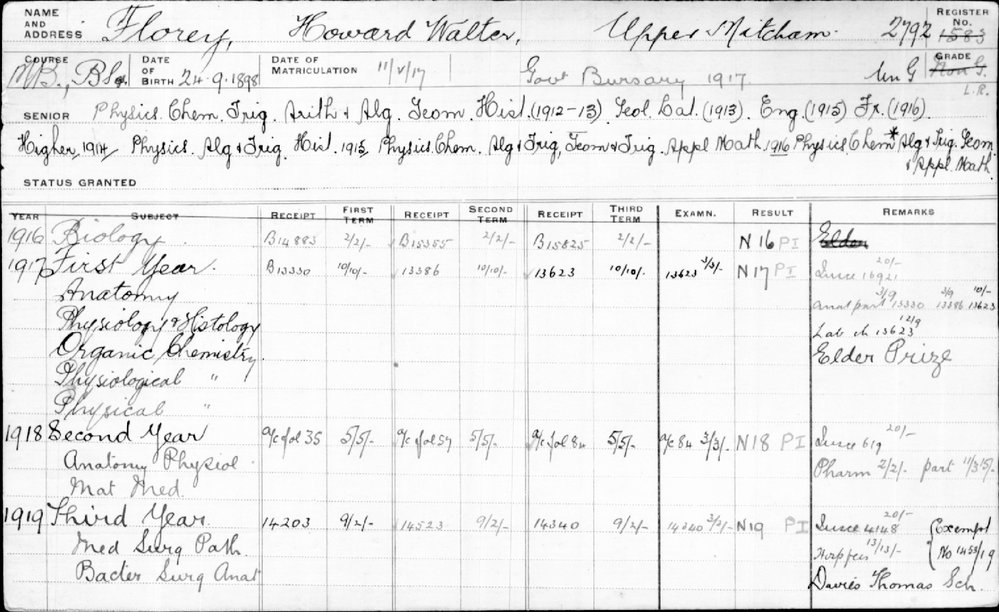 NAME AND ADDRESS Florey, Howard Walter, Upper Mitcham. 2792 REGISTER No. 1583
COURSE M.B., BSc. DATE OF BIRTH 24.9.1898 DATE OF MATRICULATION 11/V/17 Govt Bursary 1917 Un G GRADE Non G. L.R.
SENIOR Physics. Chem. Trig. Arith & Alg. Geom. Hist. (1912-13) Geol. Lat. (1913) Eng. (1915) Fr. (1916)
Higher, 1914 Physics. Alg & Trig. Hist. 1915 Physics. Chem. Alg & Trig, Geom & Trig. Appl. Math. 1916 Physics. Chem* Alg & Trig. Geom.
& Appl. Math.
STATUS GRANTED
YEAR SUBJECT RECEIPT FIRST TERM RECEIPT SECOND TERM RECEIPT THIRD TERM EXAMN. RESULT REMARKS
1916 Biology. B14883 2/2/- B15355 2/2/- B15825 2/2/- N 16 PI Elder
1917 First Year. B13330 10/10/- 13386 10/10/- 13623 10/10/- 13623 3/3/- N17 PI 20/- 16921
Anatomy Anat part 3/9 13330 3/9 13386 10/- 13623
Physiology & Histology Lab ch 13623 12/9
Organic Chemistry Elder Prize
Physiological "
Physical "
1918 Second Year a/c fol 35 5/5/- a/c fol 57 5/5/- a/c fol 84 5/5/- a/c 84 3/3/- N18 PI 20/- 619
Anatomy Physiol. Pharm 2/2/- part 11/3 15/-
Mat Med.
1919 Third Year. 14203 9/2/- 14523 9/2/- 14340 9/2/- 14340 3/3/- N19 PI 20/- 4148 {Exempt
Med Surg Path. 13/13/- {No 1453/19
Bacter Surg Anat Davies Thomas Sch.